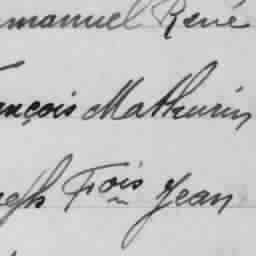 mmanuel René
ançois Mathurin
seph Fois Jean